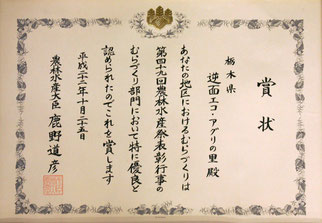 賞状
栃木県
逆面エコ・アグリの里 殿
あなたの地区におけるむらづくりは
第四十九回農林水産祭表彰行事の
むらづくり部門において特に優良と
認められたのでこれを賞します
平成二十二年十月二十五日
農林水産大臣 鹿野道彦